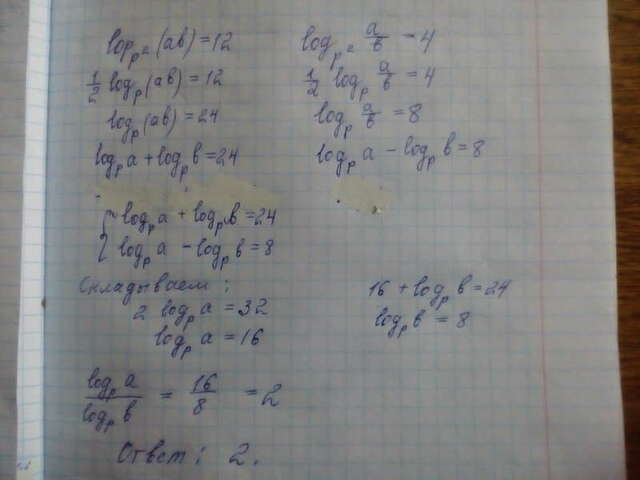 lop_p²(ab) = 12
½ log_p(ab) = 12
log_p(ab) = 24
log_p a + log_p b = 24
log_p² a/b = 4
½ log_p a/b = 4
log_p a/b = 8
log_p a - log_p b = 8
{ log_p a + log_p b = 24
log_p a - log_p b = 8
Складываем:
2 log_p a = 32
log_p a = 16
16 + log_p b = 24
log_p b = 8
log_p a / log_p b = 16/8 = 2
Ответ: 2.